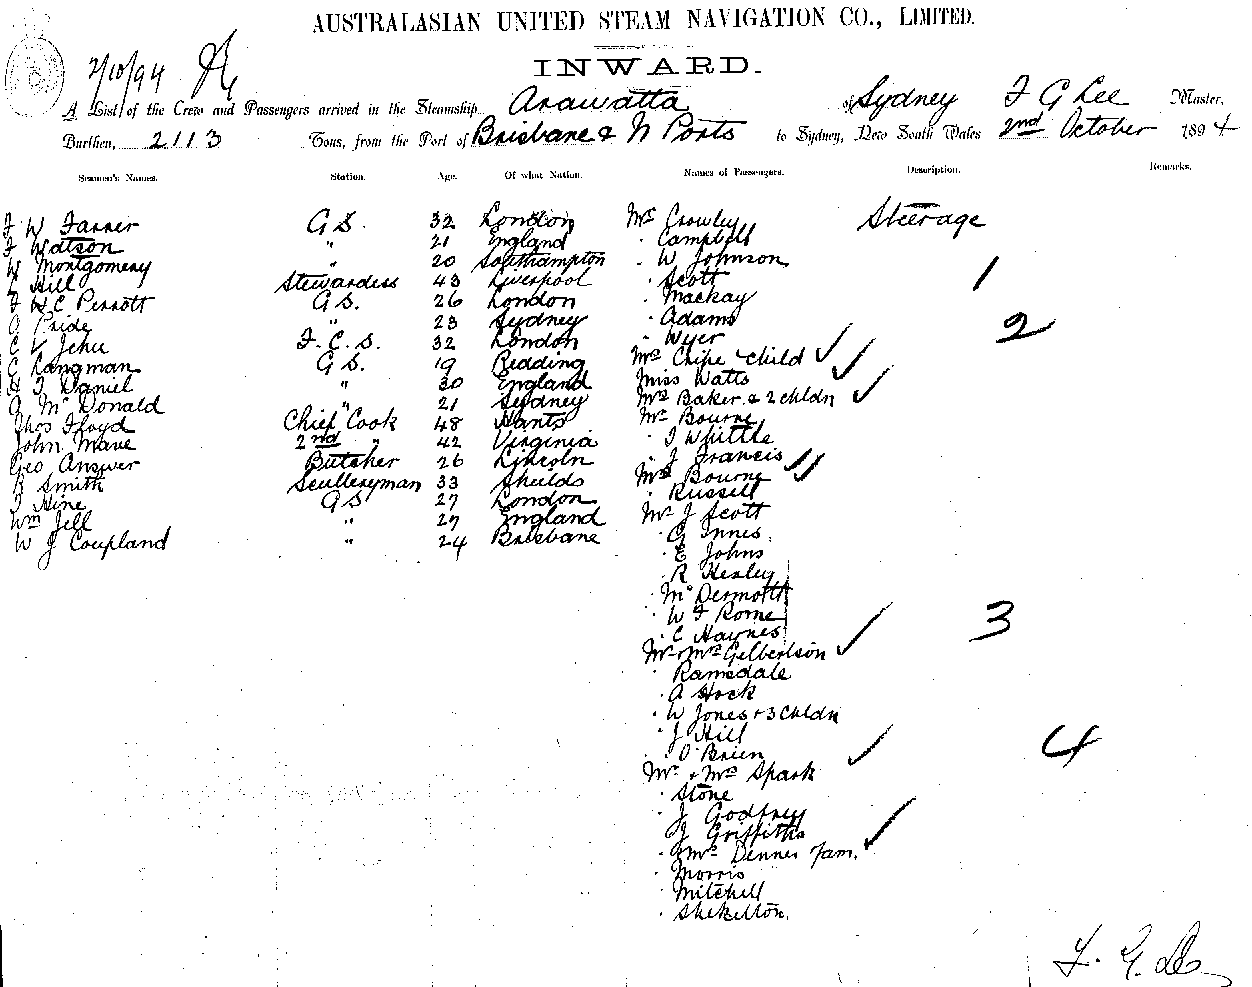 AUSTRALASIAN UNITED STEAM NAVIGATION CO., LIMITED.
2/10/94
INWARD.
A List of the Crew and Passengers arrived in the Steamship Arawatta of Sydney F G Lee Master,
Burthen, 2113 Tons, from the Port of Brisbane & N Ports to Sydney, New South Wales 2nd October 1894
Seamen's Names. Station. Age. Of what Nation. Names of Passengers. Description. Remarks.
F W Farrer G S. 32 London Mr Crowley Steerage
F Watson " 21 England " Campbell
W Montgomery " 20 Southampton " W Johnson
Hill Stewardess 43 Liverpool " Scott 1
F H C Perrott G S. 26 London " Mackay
Pride " 23 Sydney " Adams
C V Jehu F. C. S. 32 London " Wyer 2
C Langman G S. 19 Redding Mrs Chipe & child
F Daniel " 30 England Miss Watts
McDonald " 21 Sydney Mrs Baker & 2 chldn
Thos Floyd Chief Cook 48 Hants Mr Bourne
John Mave 2nd " 42 Virginia " T Whittle
Geo Answer Butcher 26 Lincoln " J Francis
R Smith Sculleryman 33 Shields Mrs Bourne
J Hine G S 27 London " Russell
Wm Jell " 27 England Mr J Scott
W J Coupland " 24 Brisbane " G Innes
" E Johns
" R Henley
" McDermott
" W F Rome 3
" C Haynes
Mr & Mrs Gilbertson
" Ramsdale
" A Hock
" W Jones & 3 chldn
" J Hill
" O'Brien 4
Mr & Mrs Spark
" Stone
" J Godfrey
" J Griffiths
" & Mrs Denner fam.
" Morris
" Mitchell
" Shekelton